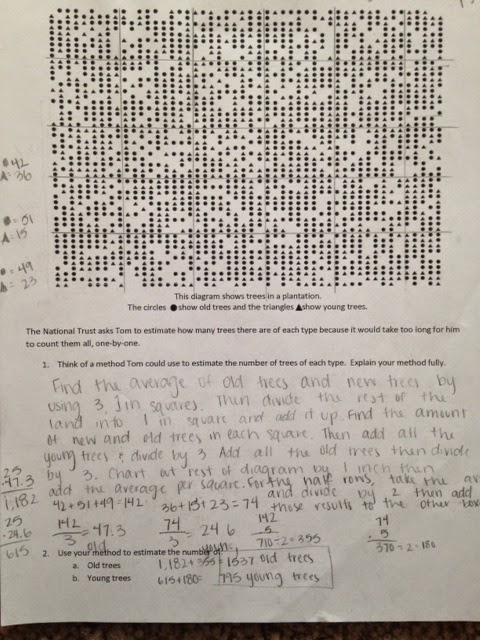 ●42
▲= 36
●= 51
▲= 15
●= 49
▲= 23
This diagram shows trees in a plantation.
The circles ●show old trees and the triangles ▲show young trees.
The National Trust asks Tom to estimate how many trees there are of each type because it would take too long for him
to count them all, one-by-one.
1. Think of a method Tom could use to estimate the number of trees of each type. Explain your method fully.
Find the average of old trees and new trees by
using 3, 1in squares. Then divide the rest of the
land into 1 in square and add it up. Find the amount
of new and old trees in each square. Then add all the
young trees & divide by 3 Add all the old trees then divide
by 3. Chart at rest of diagram by 1 inch then
add the average per square. For the half rows, take the av
and divide by 2 then add
those results to the other box
25
×47.3
1,182
42+51+49=142
36+15+23=74
142/3 = 47.3
old
74/3 = 24.6
young
142
5
710÷2=355
74
5
370÷2=180
25
×24.6
615
2. Use your method to estimate the number of:
a. Old trees 1,182+355=1537 old trees
b. Young trees 615+180= 795 young trees